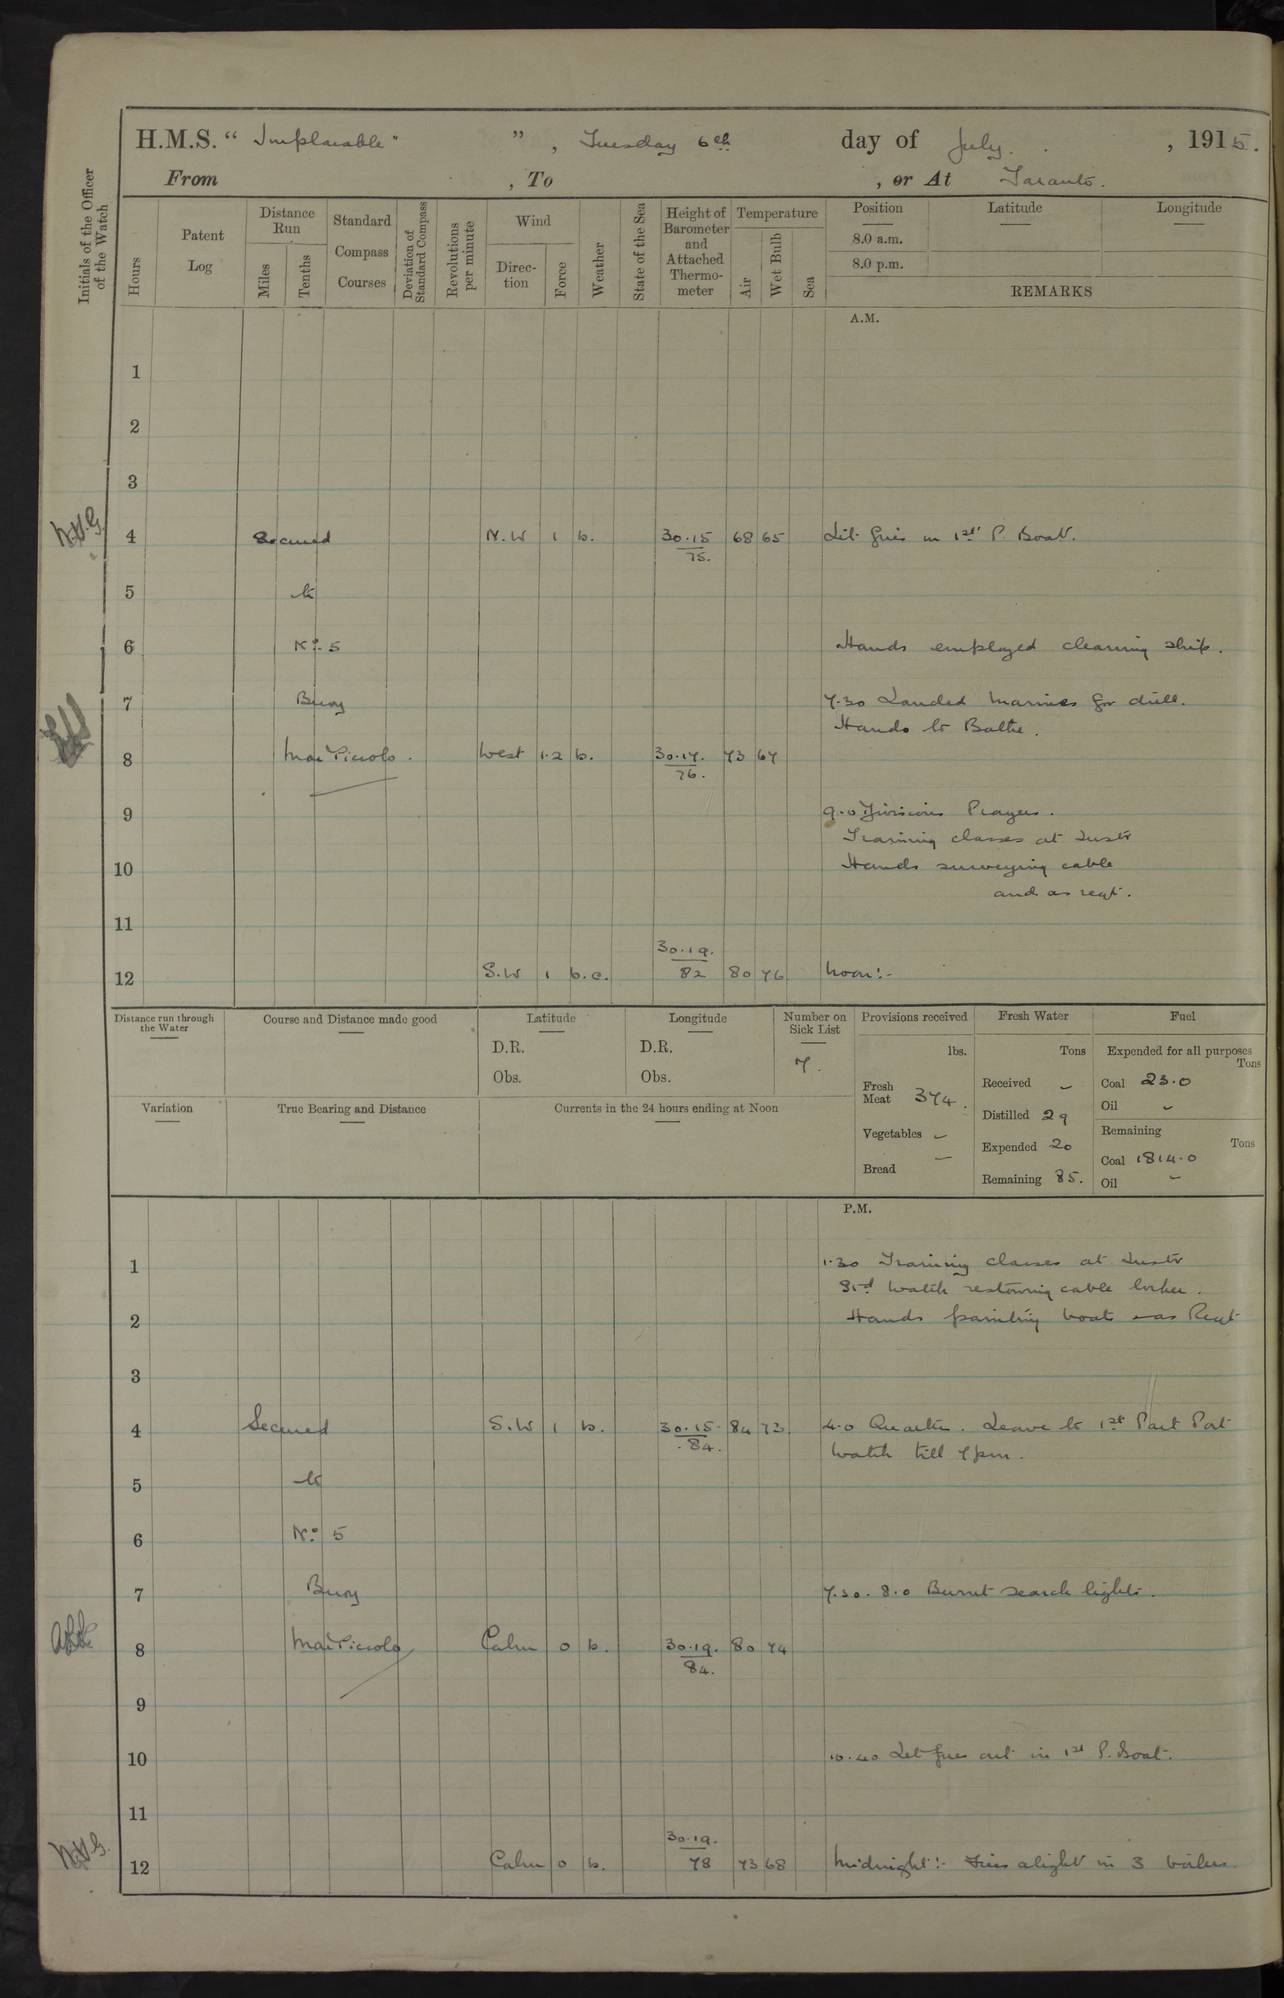 H.M.S. “ Implacable " ” , Tuesday 6th day of July. , 1915.
From , To , or At Taranto.
Initials of the Officer of the Watch
Hours
Patent Log
Distance Run
Miles
Tenths
Standard Compass Courses
Deviation of Standard Compass
Revolutions per minute
Wind
Direc-tion
Force
Weather
State of the Sea
Height of Barometer and Attached Thermo-meter
Temperature
Air
Wet Bulb
Sea
Position
8.0 a.m.
8.0 p.m.
Latitude
Longitude
REMARKS
A.M.
1
2
3
4 Secured N.W 1 b. 30.15 68 65 Lit fires in 1st P Boat.
75.
5 to
6 No. 5 Hands employed cleaning ship.
7 Buoy 7.30 Landed Marines for drill.
Hands to Bathe.
8 Mar Piccolo. West 1.2 b. 30.17. 73 67
76.
9 9.0 Divisions Prayers.
Training classes at Instr
10 Hands surveying cable
and as reqt.
11
30.19.
12 S.W 1 b.c. 82 80 76 Noon:-
Distance run through the Water
Course and Distance made good
Latitude
D.R.
Obs.
Longitude
D.R.
Obs.
Number on Sick List
7.
Provisions received
lbs.
Fresh Meat 374.
Vegetables –
Bread –
Fresh Water
Tons
Received –
Distilled 29
Expended 20
Remaining 85.
Fuel
Expended for all purposes
Tons
Coal 23.0
Oil –
Remaining
Tons
Coal 1814.0
Oil –
Variation
True Bearing and Distance
Currents in the 24 hours ending at Noon
P.M.
1 1.30 Training classes at Instr
Stbd Watch restowing cable locker.
2 Hands painting boats & as Reqt
3
4 Secured S.W 1 b. 30.15 84 73 4.0 Quarters. Leave to 1st Part Port
.84. Watch till 7pm.
5 to
6 No. 5
7 Buoy 7.30. 8.0 Burnt search lights.
8 Mar Piccolo Calm 0 b. 30.19. 80 74
84.
9
10 10.40 Let fires out in 1st P. Boat.
11
30.19.
12 Calm 0 b. 78 73 68 Midnight:- Fires alight in 3 boilers.